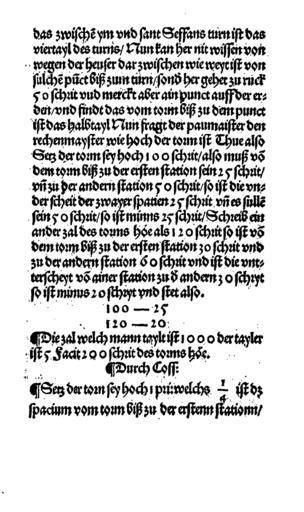 das zwischẽ ym vnd sant Steffans turn ist das
viertayl des turns/ Nun kan her nit wissen von
wegen der heuser dar zwischen wie weyt ist von
sülchẽ pũct biß zum turn/sonđ her gehet zu ruck
50 schrit vnd merckt aber ain punct auff der er-
den/vnd findt das vom torm biß zu dem punct
ist das halbtayl Nun fragt der paumaister den
rechenmayster wie hoch der torm ist Thue also
Setz der torm sey hoch 100 schrit/also muß võ
dem torm biß zu der ersten station sein 25 schrit/
vñ zu der andern station 50 schrit/so ist die vn-
der scheit der zwayer spatien 25 schrit vñ es süllẽ
sein 50 schrit/so ist minns 25 schrit/Schreib ein
ander zal des torms höe als 120 schrit so ist võ
dem torm biß zu der ersten station 30 schrit vnd
zu der andern station 60 schrit vnd ist die vnt-
terscheyt võ ainer station zu đ andern 30 schryt
so ist minus 20 schryt vnd stet also.
100 — 25
120 — 20
¶Die zal welch mann taylt ist 1000 der tayler
ist 5 Facit 200 schrit des torms höe.
¶Durch Coss:
¶Setz der torn sey hoch 1 pri: welchs 1/4 ist dz
spacium vom torm biß zu der erstenn stationn/